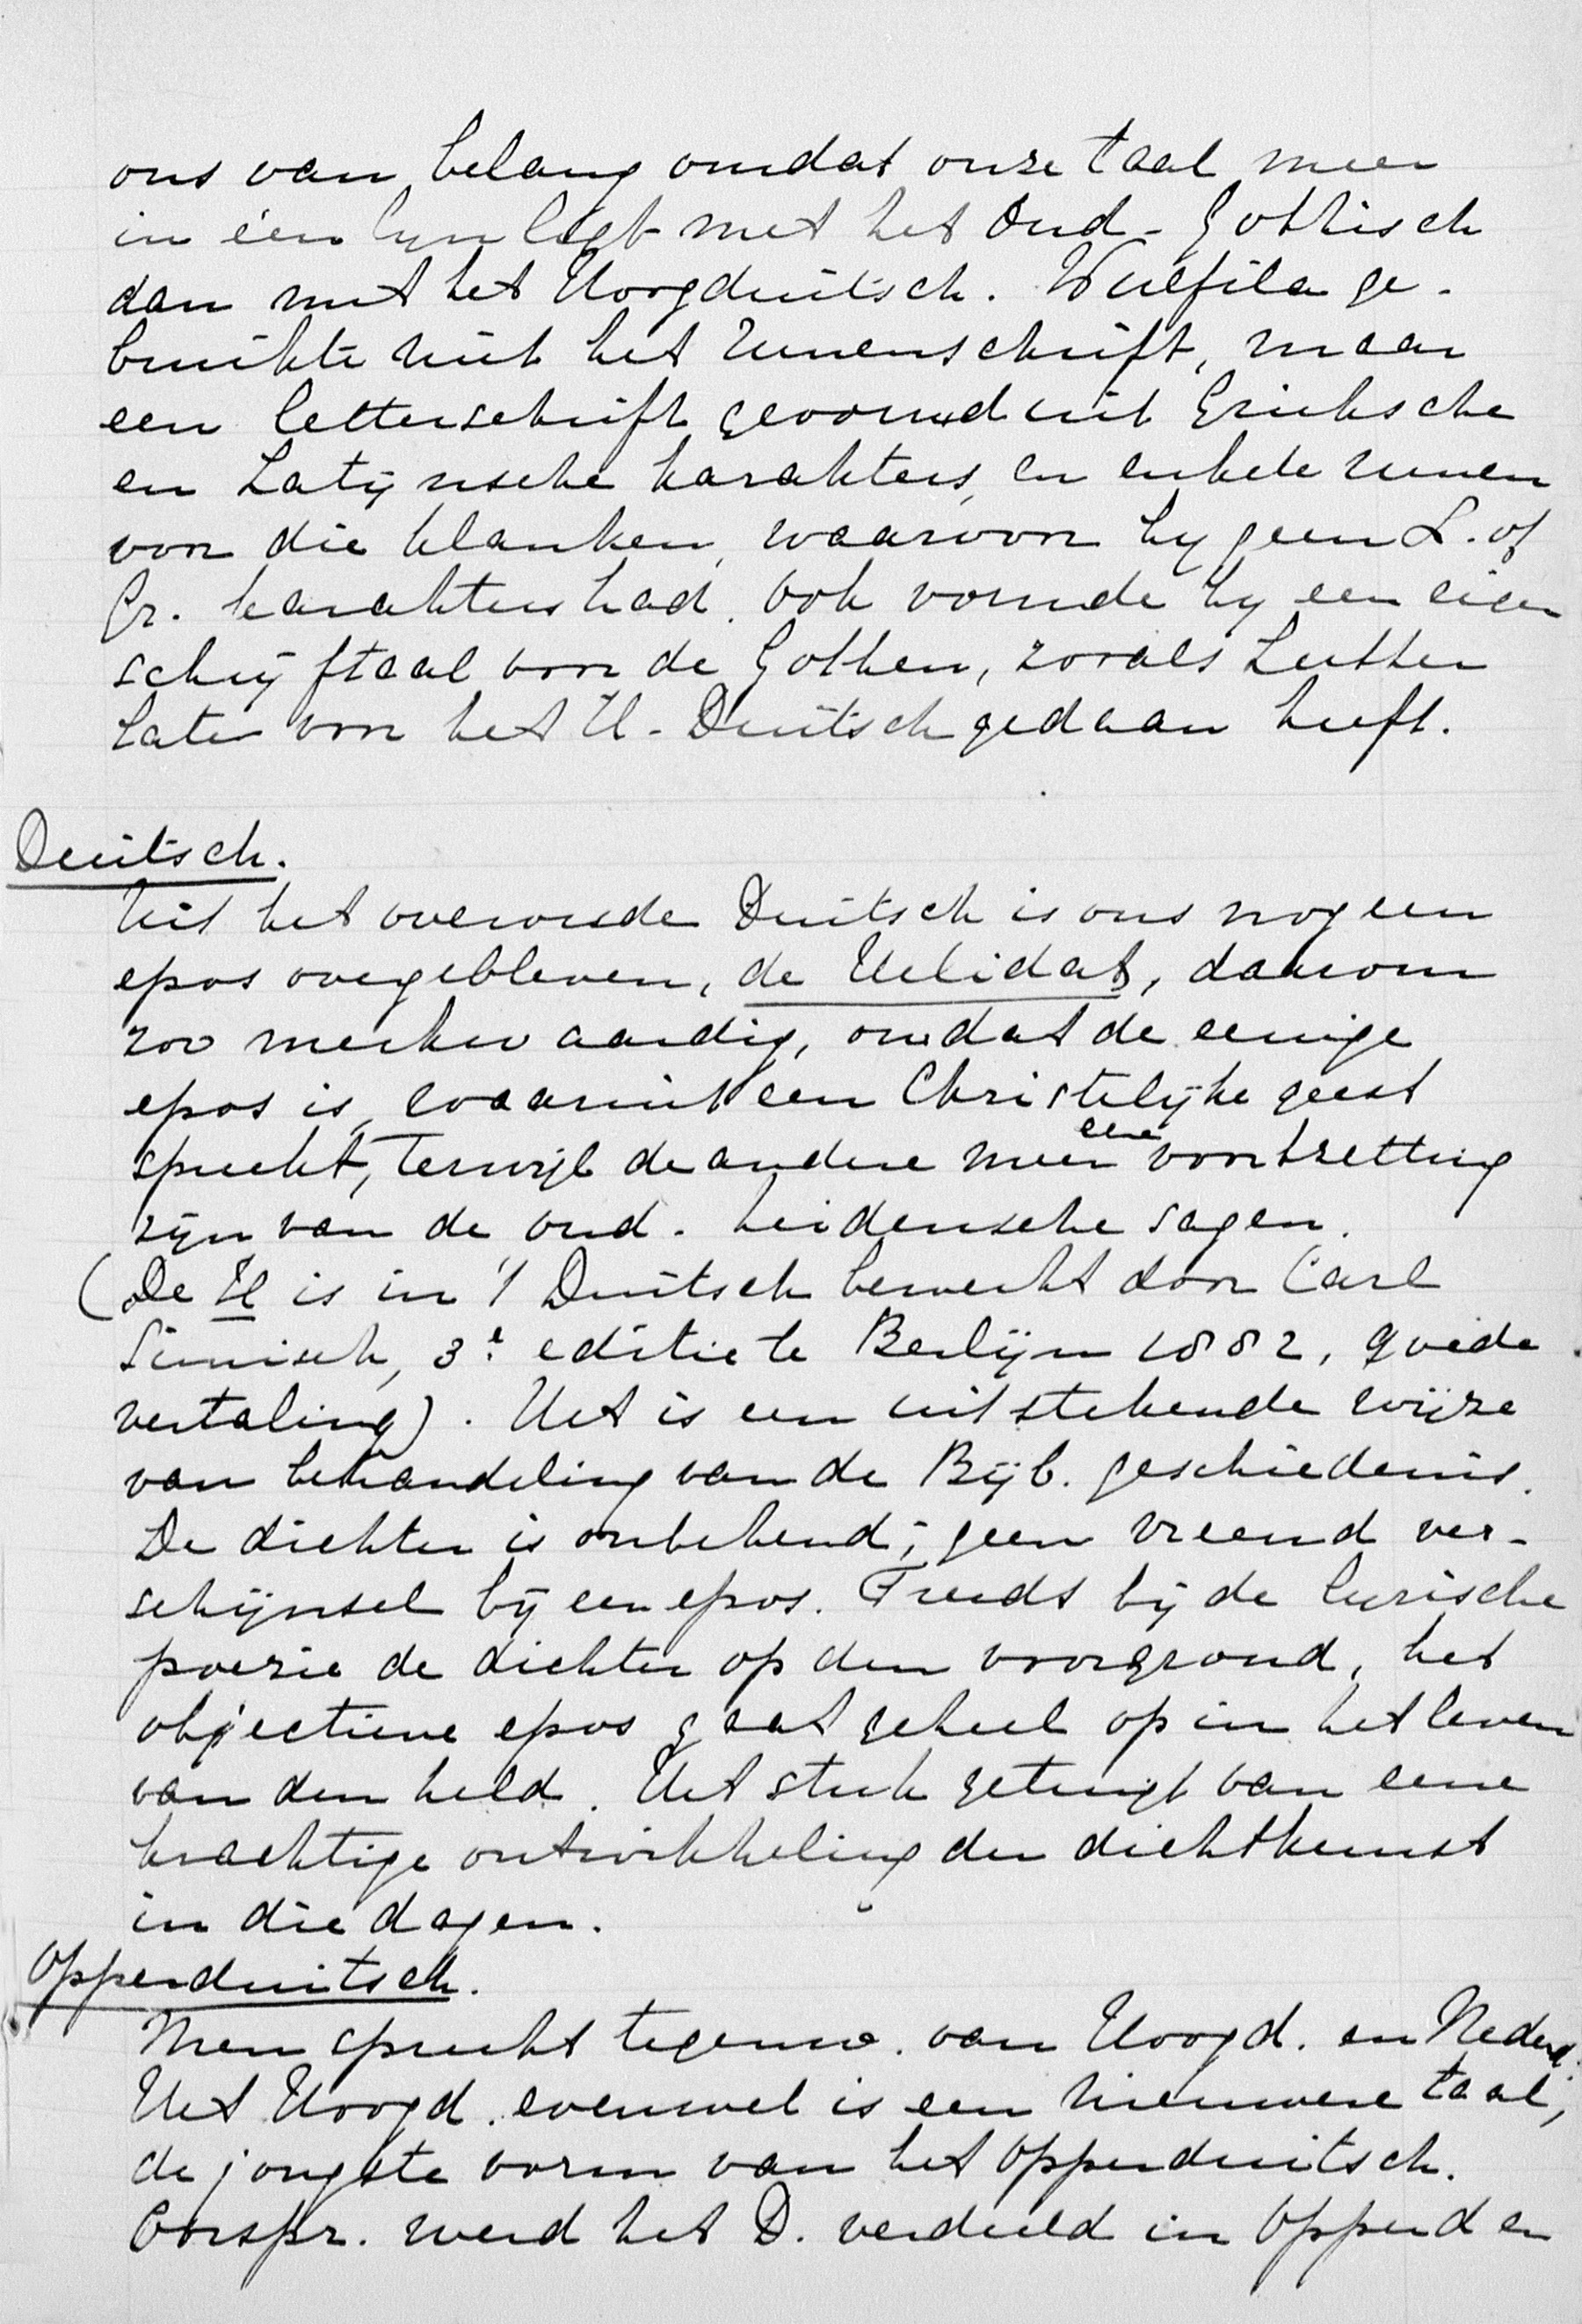 ons van belang omdat onze taal meer
in één lijn ligt met het Oud-Gothisch
dan met het Hoogduitsch. Wulfila ge-
bruikte niet het runenschrift, maar
een letterschrift gevormd uit Grieksche
en Latijnsche karakters, en enkele runen
voor die klanken, waarvoor hij geen L. of
Gr. karakters had. Ook vormde hij een eigen
schrijftaal voor de Gothen, zooals Luther
later voor het H-Duitsch gedaan heeft.
Duitsch.
Uit het overoude Duitsch is ons nog een
epos overgebleven, de Helidat, daarom
zoo merkwaardig, omdat de eenige
epos is, waaruit een Christelijke geest
spreekt, terwijl de andere meer eene voortzetting
zijn van de oud-heidensche sagen.
(De H is in 't Duitsch bewerkt door Carl
Simisch, 3e editie te Berlijn 1882, goede
vertaling). Het is een uitstekende wijze
van behandeling van de Bijb. geschiedenis.
De dichter is onbekend; geen vreemd ver-
schijnsel bij een epos. Treedt bij de lyrische
poezie de dichter op den voorgrond, het
objectieve epos gaat geheel op in het leven
van den held. Het stuk getuigt van eene
krachtige ontwikkeling der dichtkunst
in die dagen.
Opperduitsch.
Men spreekt tegenw. van Hoogd. en Nederd.
Het Hoogd. evenwel is een nieuwere taal,
de jongste vorm van het Opperduitsch.
Oorspr. werd het D. verdeeld in Opperd en